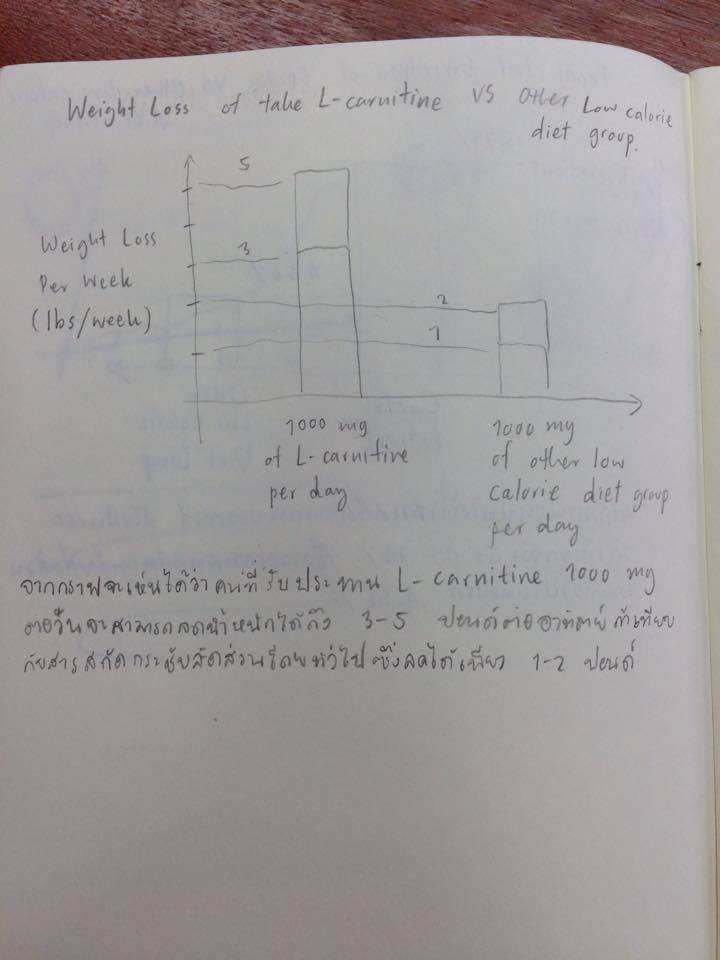 Weight Loss of take L-carnitine VS Other Low calorie
diet group.
5
Weight Loss
Per week
(lbs/week)
3
2
1
1000 mg
of L-carnitine
per day
1000 mg
of other low
calorie diet group
per day
จากกราฟจะเห็นได้ว่า คนที่รับประทาน L-carnitine 1000 mg
ต่อวันจะสามารถลดน้ำหนักได้ถึง 3-5 ปอนด์ต่ออาทิตย์ ถ้าเทียบ
กับสารสกัดกระชับสัดส่วนโดยทั่วไป ซึ่งลดได้เพียง 1-2 ปอนด์